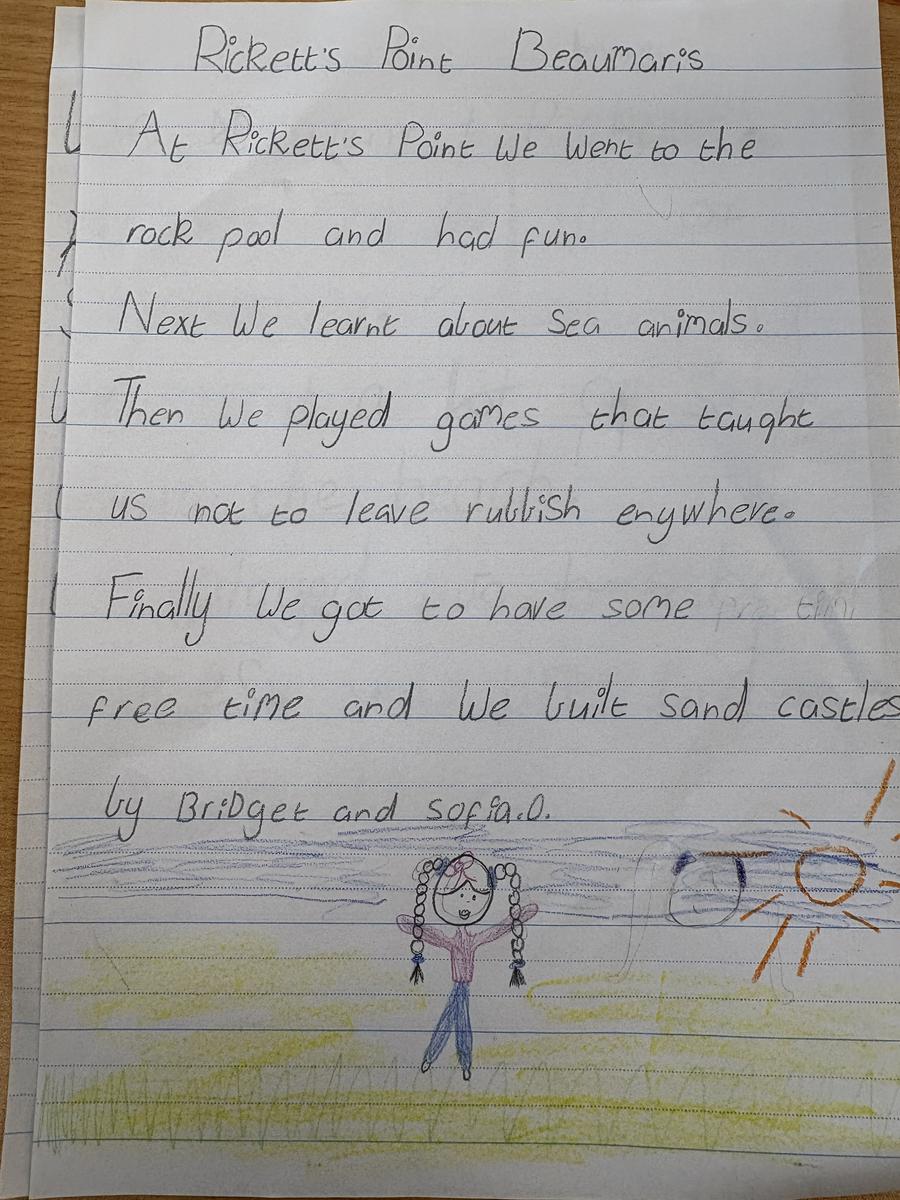 Rickett's Point Beaumaris
At Rickett's Point We Went to the
rock pool and had fun.
Next We learnt about Sea animals.
Then We played games that taught
us not to leave rubbish enywhere.
Finally We got to have some
free time and We built sand castles
by BriDget and sofia.O.